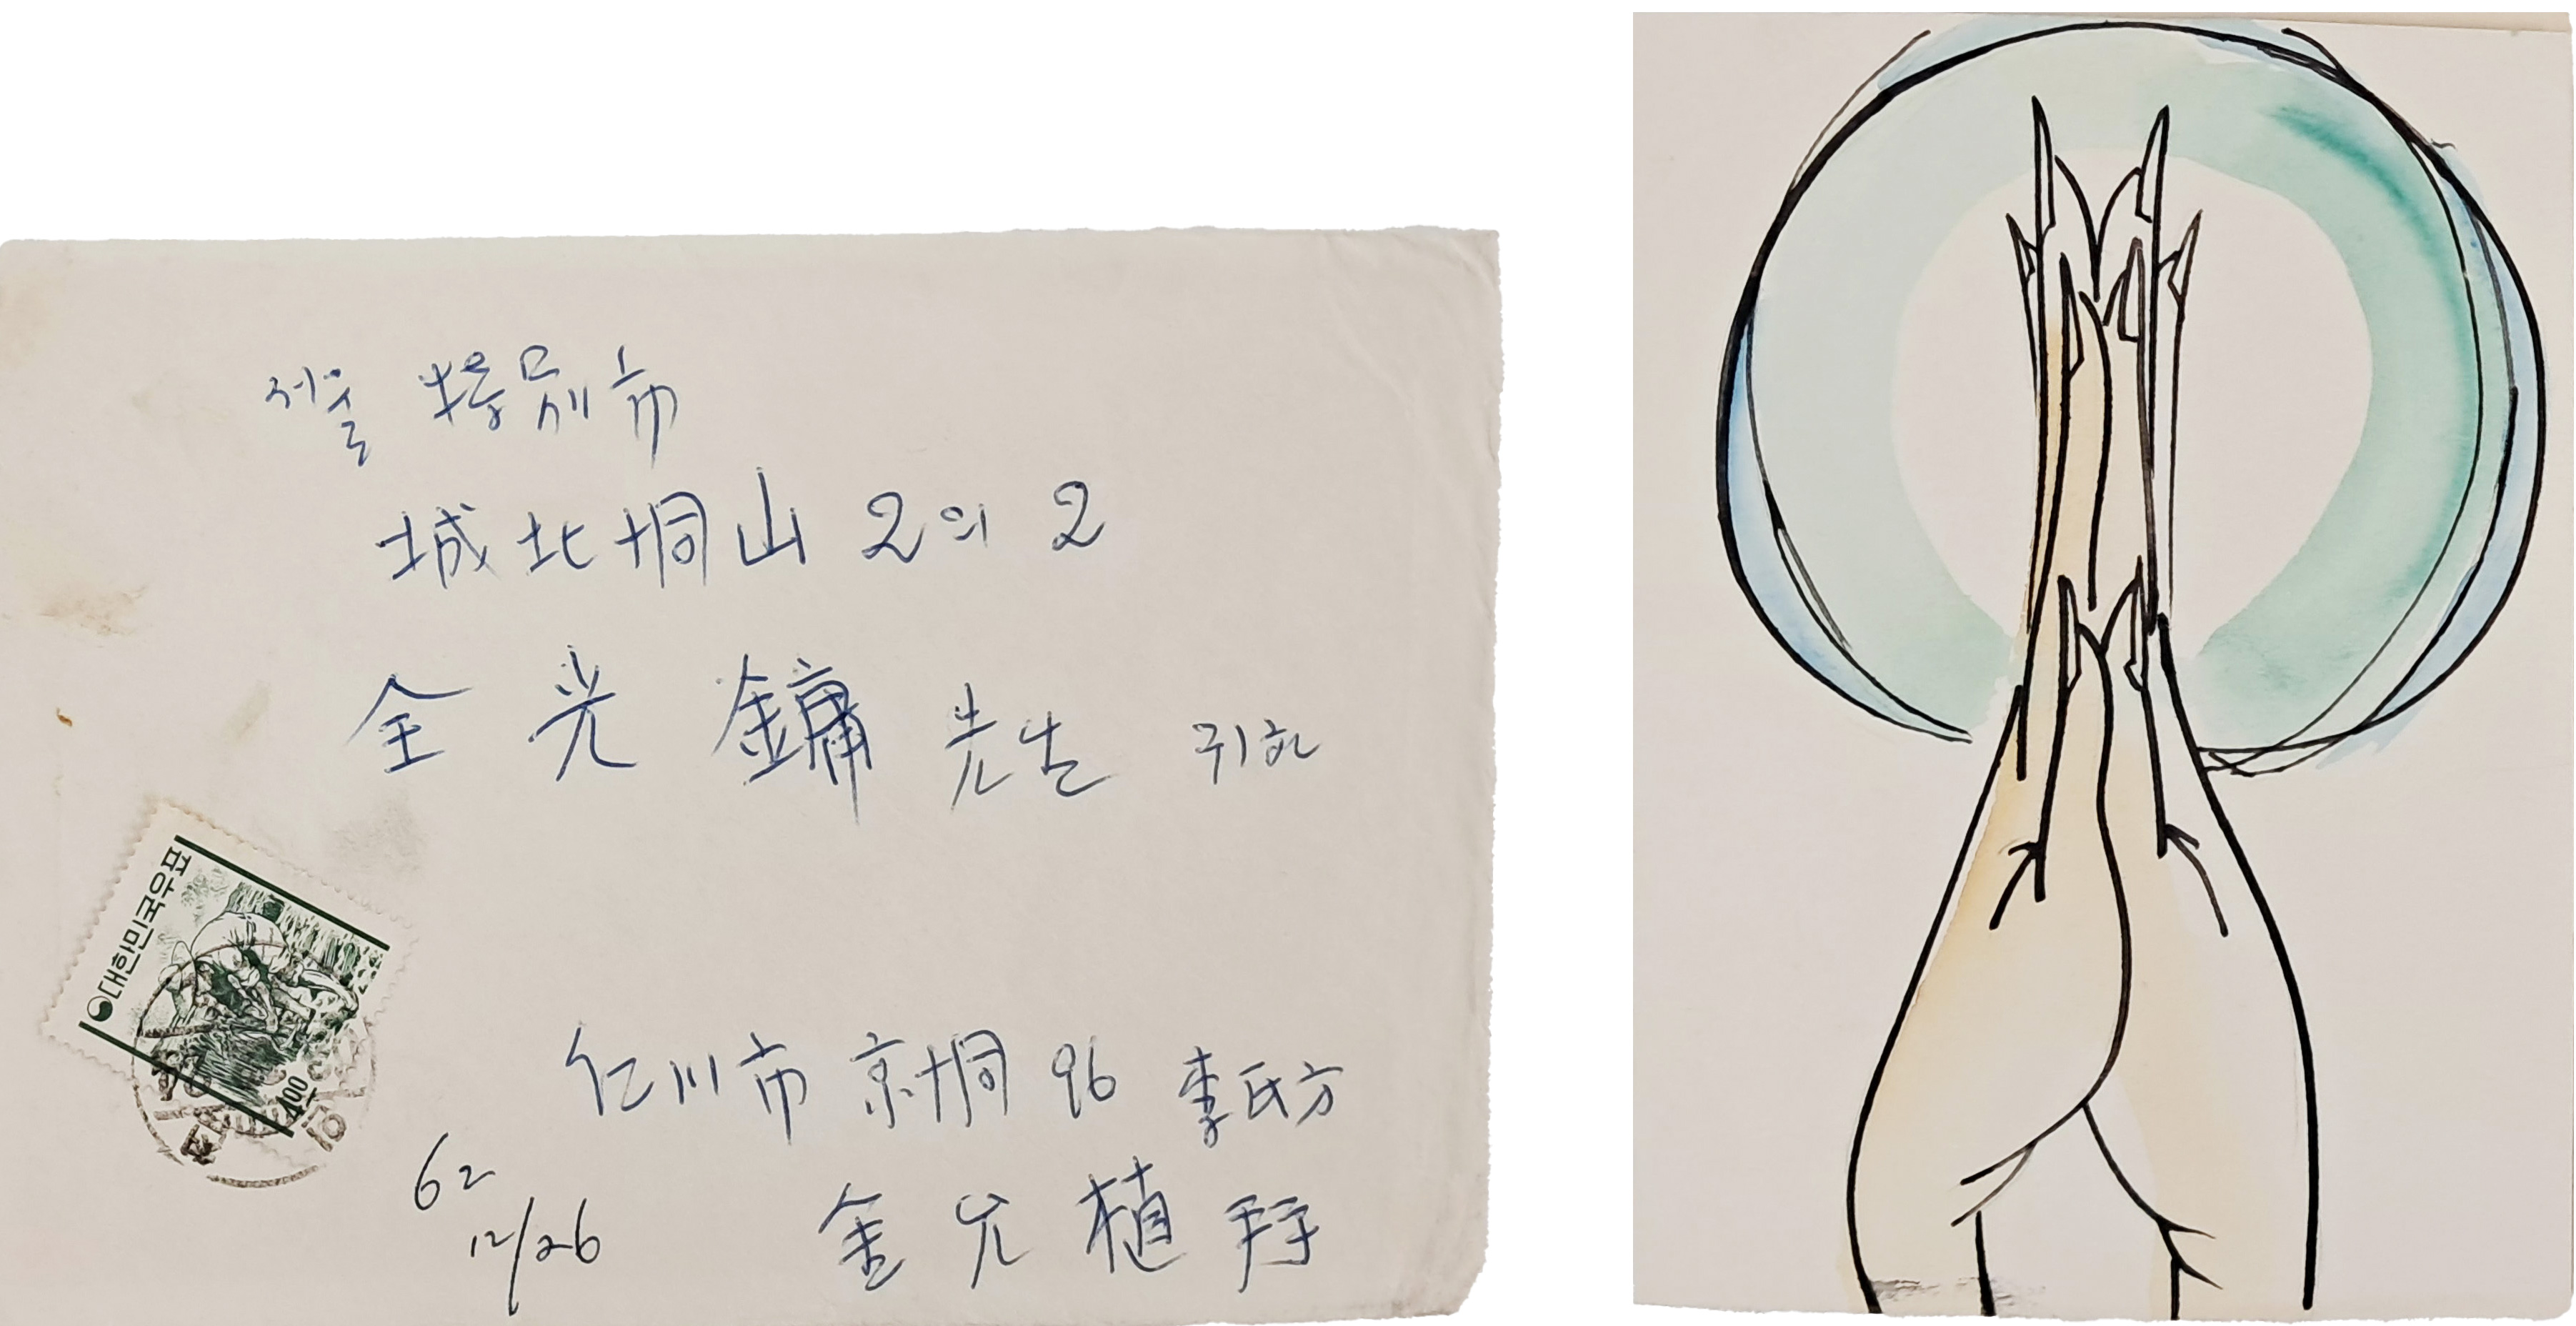 서울 特別市
城北洞山 2의 2
全光鏞 先生 귀하
대한민국우표
400
仁川市 京洞 96 李氏方
金允植 拜
62
12/26